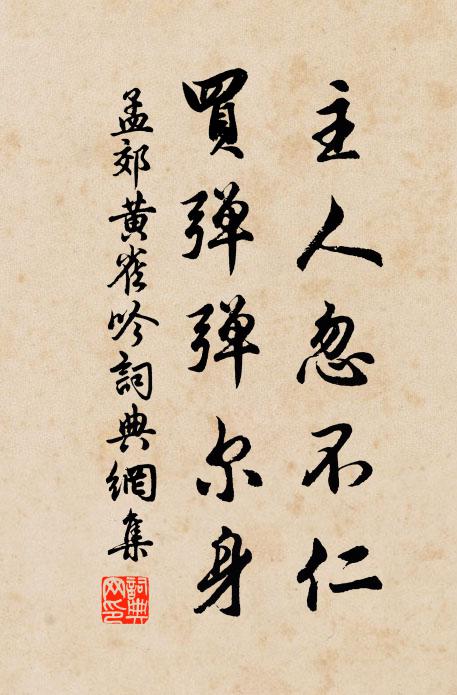 主人忽不仁
買弹弹尔身
孟郊黄雀吟詞典網集
詞典網印